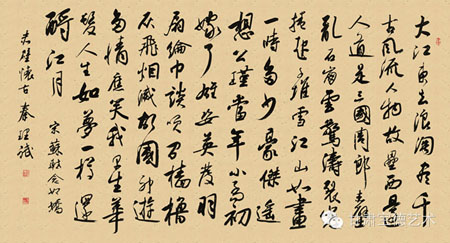 大江東去浪淘盡千
古風流人物故壘西邊
人道是三國周郎赤壁
亂石崩雲驚濤裂岸
捲起千堆雪江山如畫
一時多少豪傑遙
想公瑾當年小喬初
嫁了雄姿英發羽
扇綸巾談笑間檣櫓
灰飛烟滅故國神遊
多情應笑我早生華
髮人生如夢一樽還
酹江月 宋蘇軾念奴嬌
赤壁懷古 秦理斌
甘肃宝德艺术